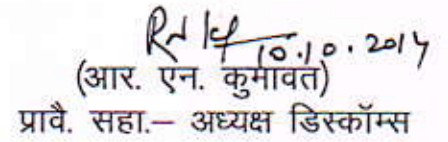 10.10.2014
(आर. एन. कुमावत)
प्रावै. सहा.– अध्यक्ष डिस्कॉम्स